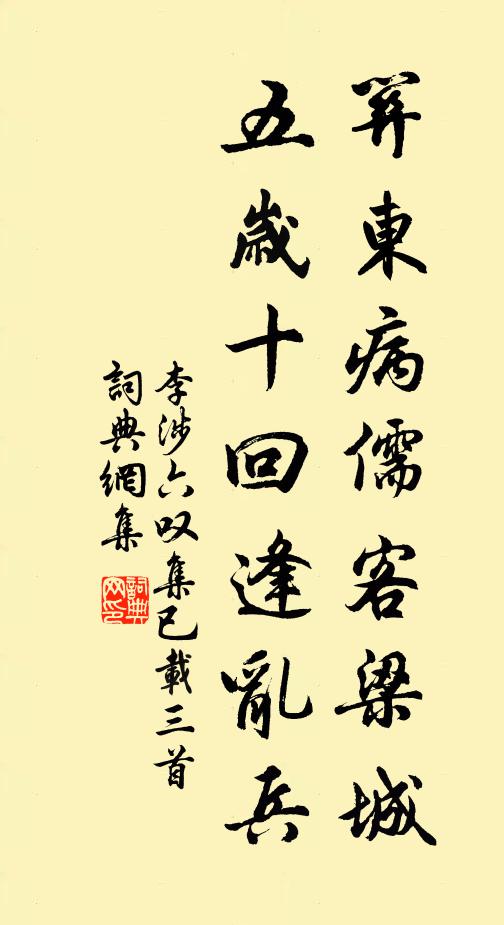 關東病儒客梁城
五歲十回逢亂兵
李涉六叹集已載三首
詞典網集
詞典网印